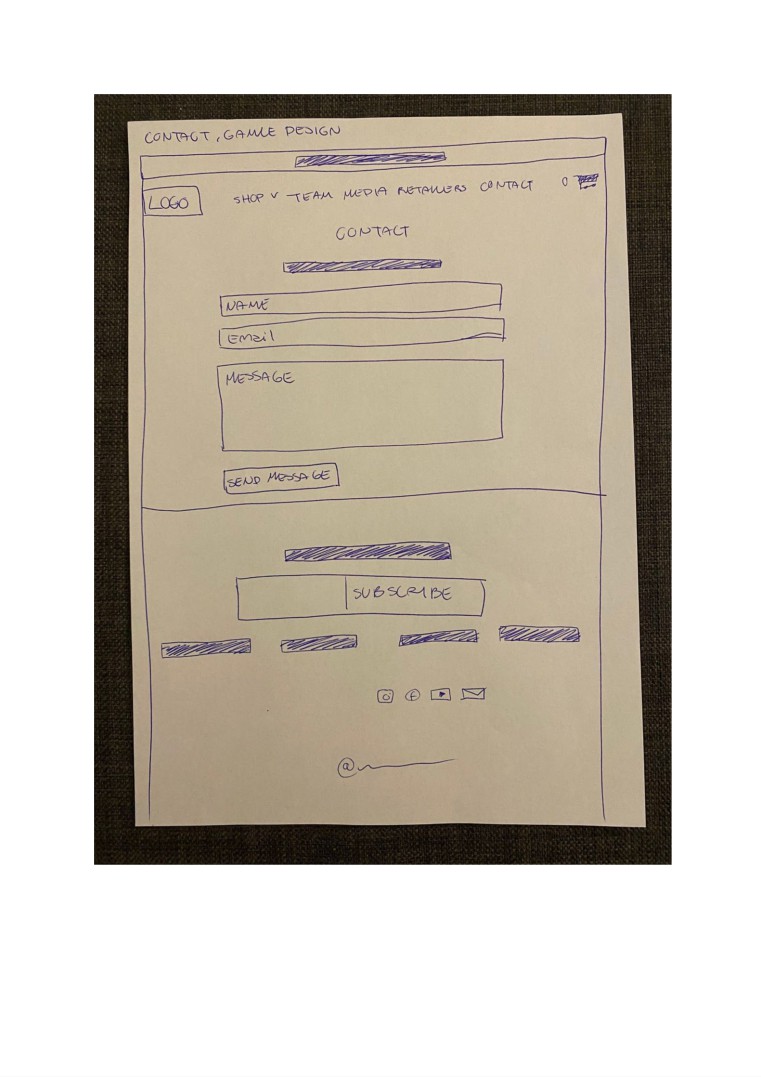 CONTACT, GAMLE DESIGN
LOGO
SHOP v TEAM MEDIA RETAILERS CONTACT 0
CONTACT
NAME
Email
MESSAGE
SEND MESSAGE
SUBSCRIBE
@